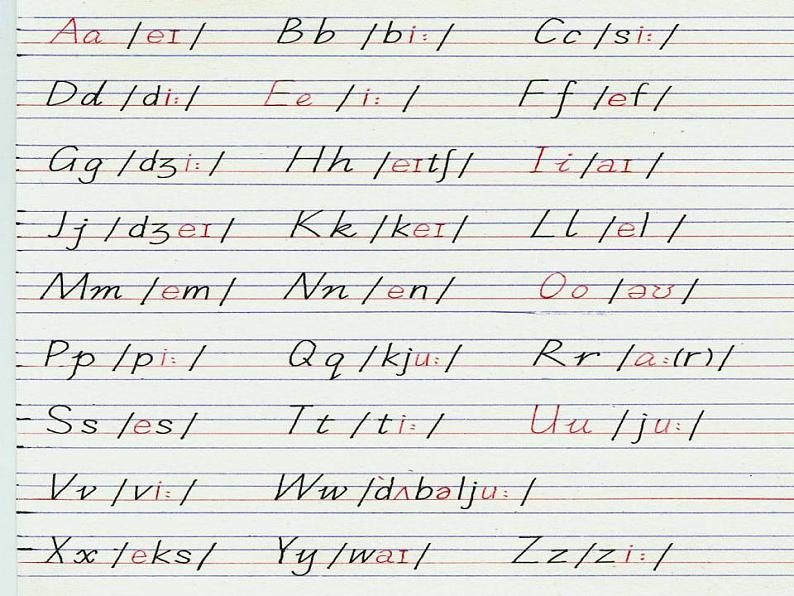 Aa /eɪ/ Bb /bi:/ Cc /si:/
Dd /di:/ Ee /i:/ Ff /ef/
Gg /dʒi:/ Hh /eɪtʃ/ Ii /aɪ/
Jj /dʒeɪ/ Kk /keɪ/ Ll /el/
Mm /em/ Nn /en/ Oo /əʊ/
Pp /pi:/ Qq /kju:/ Rr /a:(r)/
Ss /es/ Tt /ti:/ Uu /ju:/
Vv /vi:/ Ww /ˈdʌbəlju:/
Xx /eks/ Yy /waɪ/ Zz /zi:/